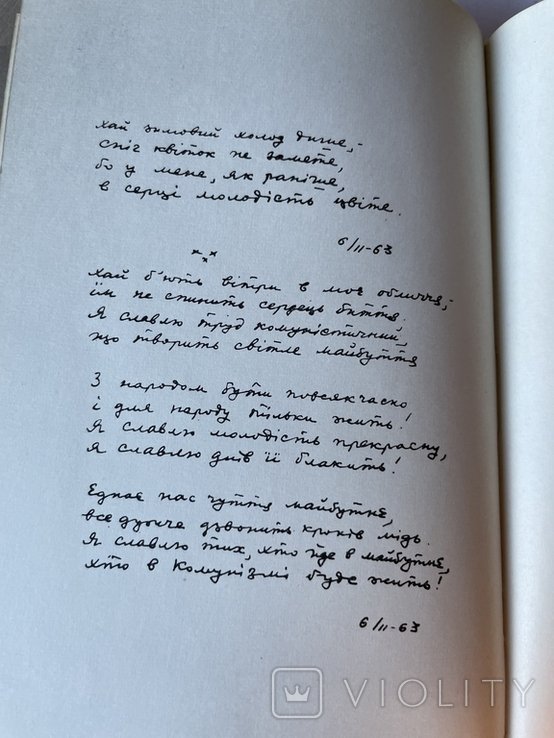 хай зимовий холод дише,-
сніг квіток не замете,
бо у мене, як раніше,
в серці молодість цвіте.
6/II-63
***
Хай б'ють вітри в моє обличчя,-
їм не спинить сердець биття,
Я славлю труд комуністичний,
що творить світле майбуття
З народом бути повсякчасно
і для народу тільки жить!
Я славлю молодість прекрасну,
я славлю днів її блакить!
Єднає нас чуття майбутнє,
все дужче дзвонить кроків мідь.
Я славлю тих, хто йде в майбутнє,
хто в Комунізмі буде жить!
6/II-63
VIOLITY